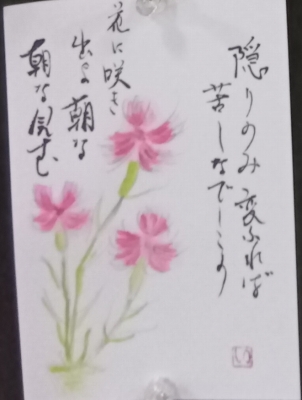 隠りのみ恋ふれば
苦しなでしこの
花に咲き
出よ朝な
朝な見む